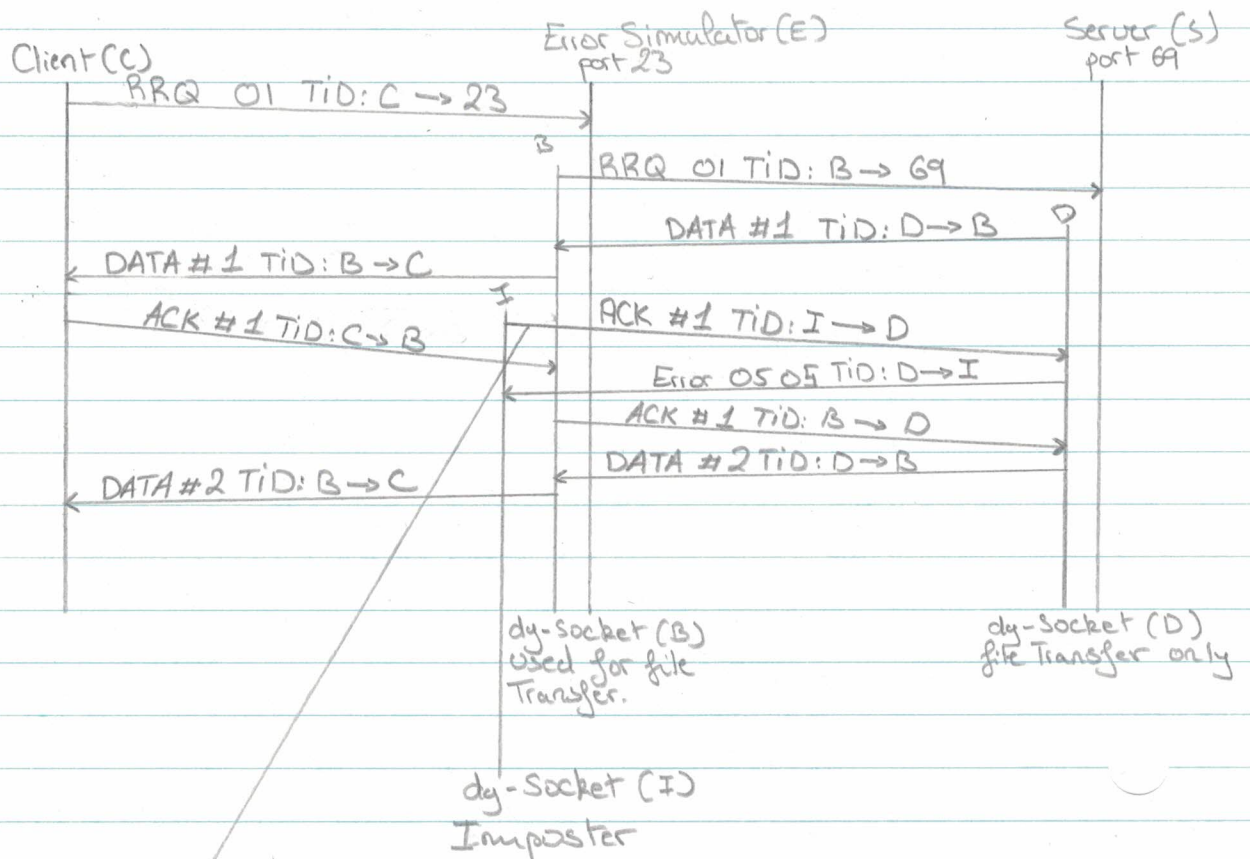 Client (C)
Error Simulator (E)
port 23
Server (S)
port 69
RRQ 01 TiD: C → 23
B
RRQ 01 TiD: B → 69
D
DATA #1 TiD: D → B
DATA #1 TiD: B → C
I
ACK #1 TiD: C → B
ACK #1 TiD: I → D
Error 05 05 TiD: D → I
ACK #1 TiD: B → D
DATA #2 TiD: D → B
DATA #2 TiD: B → C
dy-socket (B)
used for file
Transfer.
dy-socket (D)
file Transfer only
dy-socket (I)
Imposter